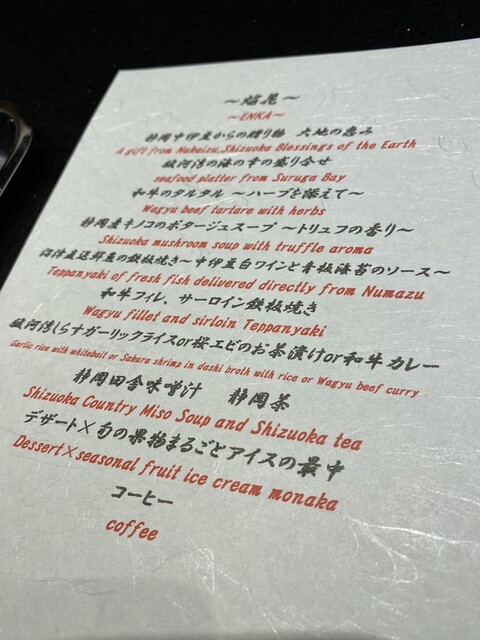 ～焔花～
～ENKA～
静岡中伊豆からの贈り物　大地の恵み
A gift from Nakaizu,Shizuoka Blessings of the Earth
駿河湾の海の幸の盛り合せ
seafood platter from Suruga Bay
和牛のタルタル ～ハーブを添えて～
Wagyu beef tartare with herbs
静岡産キノコのポタージュスープ ～トリュフの香り～
Shizuoka mushroom soup with truffle aroma
沼津直送鮮魚の鉄板焼き～中伊豆白ワインと青板海苔のソース～
Teppanyaki of fresh fish delivered directly from Numazu
和牛フィレ、サーロイン鉄板焼き
Wagyu fillet and sirloin Teppanyaki
駿河湾しらすガーリックライスor桜エビのお茶漬けor和牛カレー
Garlic rice with whitebait or Sakura shrimp in dashi broth with rice or Wagyu beef curry
静岡田舎味噌汁　静岡茶
Shizuoka Country Miso Soup and Shizuoka tea
デザート×旬の果物まるごとアイスの最中
Dessert×seasonal fruit ice cream monaka
コーヒー
coffee